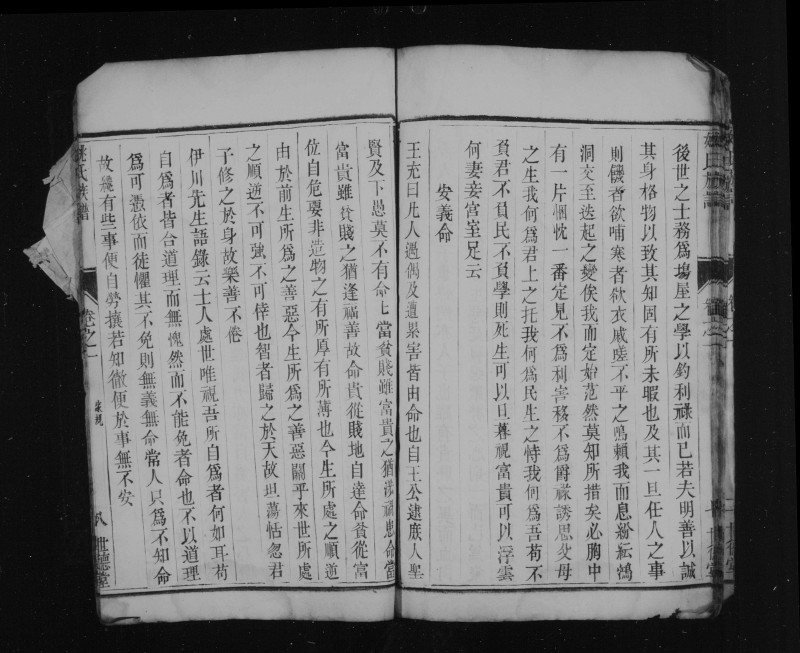 後世之士務為塲屋之學以釣利祿而已若夫明善以誠
其身格物以致其知固有所未暇也及其一旦任人之事
則饑者欲哺寒者欲衣戚嗟不平之鳴賴我而息紛紜鶻
洞交至迭起之變俟我而定始茫然莫知所措矣必胸中
有一片悃忱一番定見不為利害移不為爵祿誘思父母
之生我何為君上之托我何為民生之恃我何為吾苟不
負君不負民不負學則死生可以旦暮視富貴可以浮雲
何妻妾宮室足云
安義命
王充曰凡人遇偶及遭累害皆由命也自王公逮庶人聖
賢及下愚莫不有命七當貧賤雖富貴之猶涉禍患命當
富貴雖貧賤之猶逢福善故命貴從賤地自達命貧從富
位自危要非造物之有所厚有所薄也今生所處之順逆
由於前生所為之善惡今生所為之善惡關乎來世所處
之順逆不可強不可倖也智者歸之於天故坦蕩恬忽君
子修之於身故樂善不倦
伊川先生語錄云士人處世唯視吾所自為者何如耳苟
自為者皆合道理而無愧然而不能免者命也不以道理
為可憑依而徒懼其不免則無義無命常人只為不知命
故纔有些事便自勞攘若知徹便於事無不安
姚氏族譜
卷之一
八
世德堂